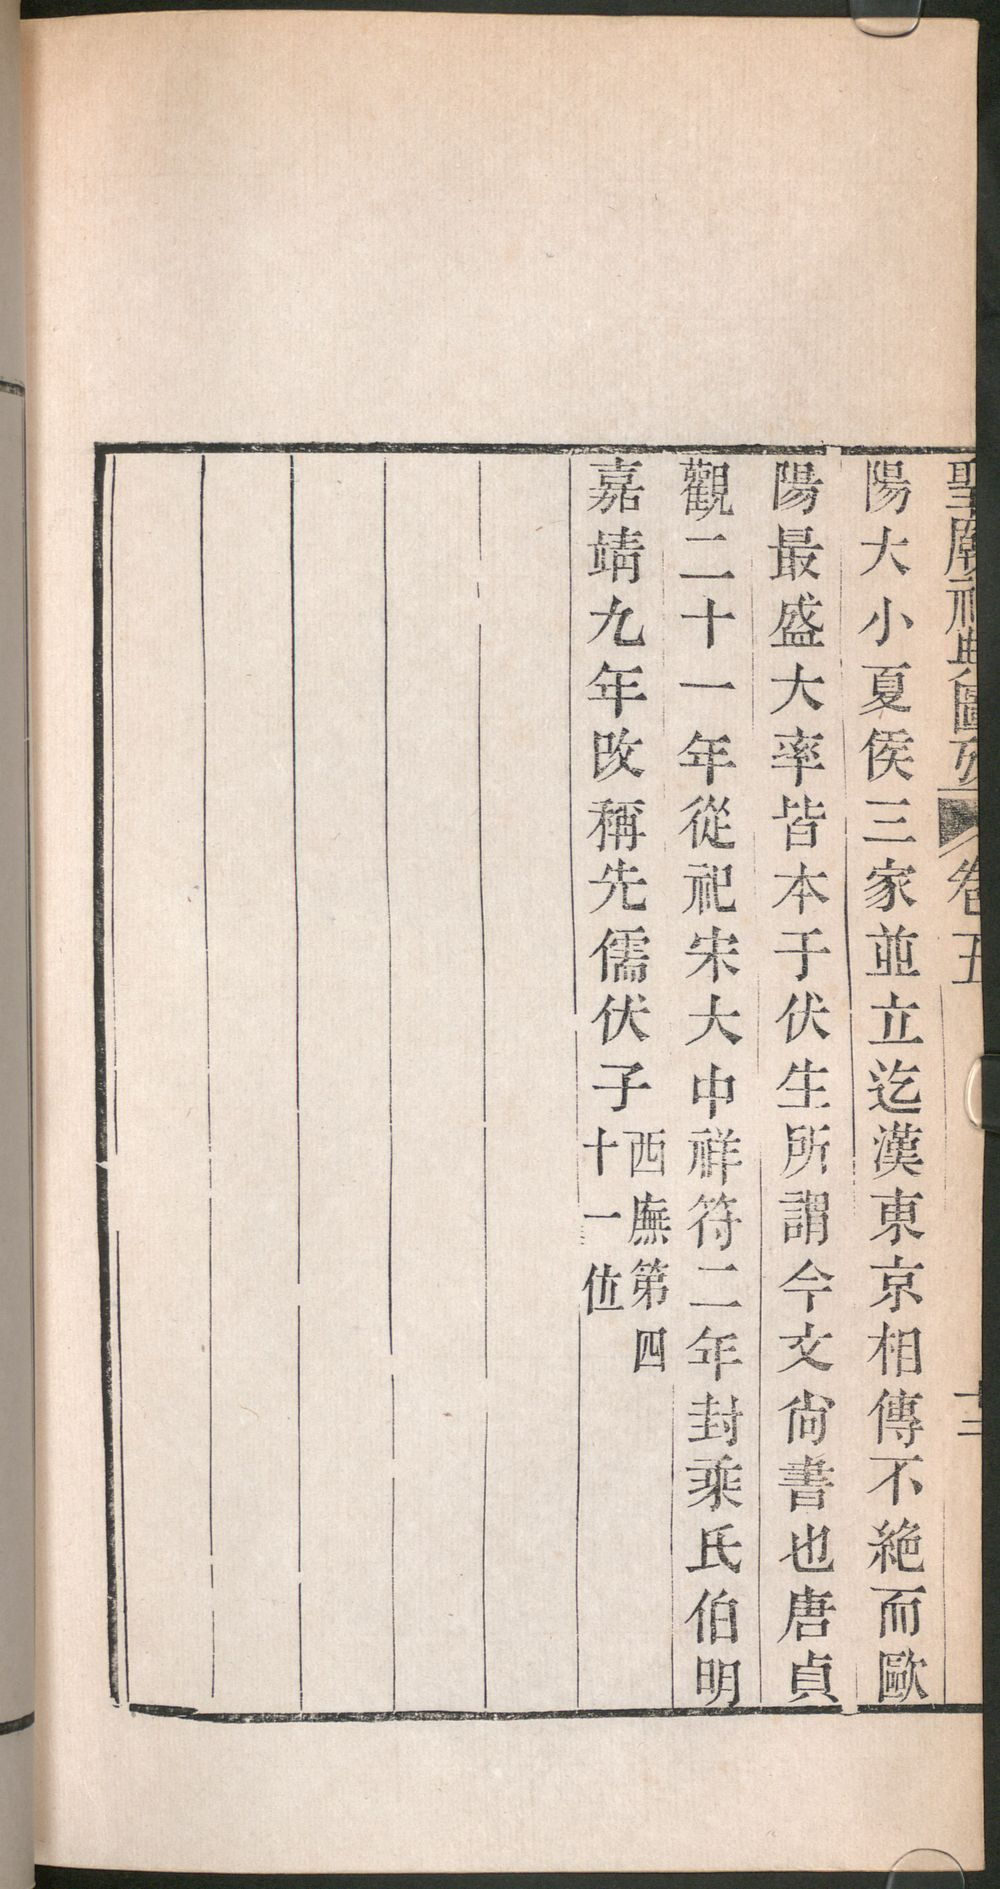 聖廟祀典圖攷 卷五 十三
陽大小夏侯三家並立迄漢東京相傳不絶而歐
陽最盛大率皆本于伏生所謂今文尚書也唐貞
觀二十一年從祀宋大中祥符二年封乘氏伯明
嘉靖九年改稱先儒伏子西廡第四
十一位